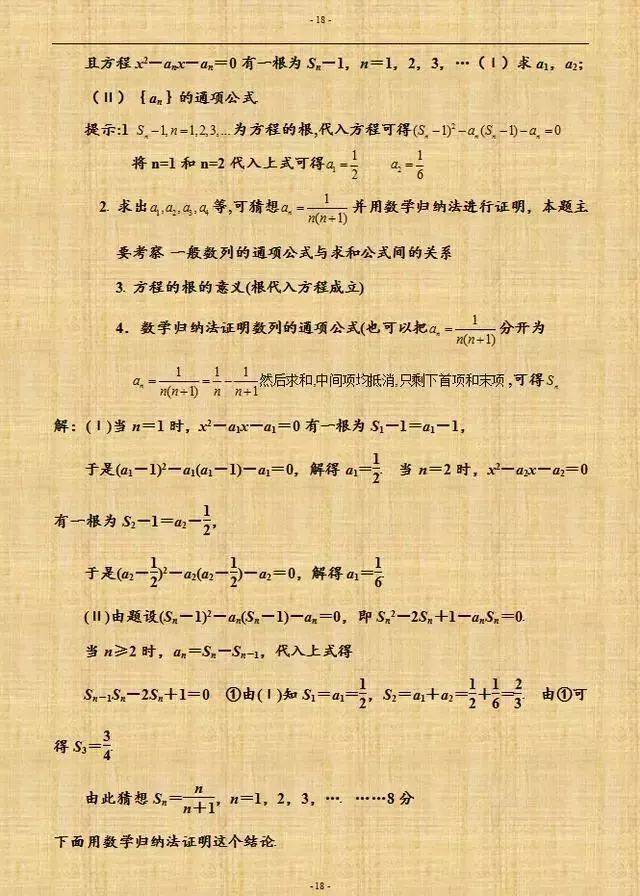 - 18 -
且方程 x²－aₙx－aₙ＝0 有一根为 Sₙ－1，n＝1，2，3，…（Ⅰ）求 a₁，a₂；
（Ⅱ）｛aₙ｝的通项公式.
提示:1 Sₙ－1,n=1,2,3,...为方程的根,代入方程可得(Sₙ－1)²－aₙ(Sₙ－1)－aₙ=0
将 n=1 和 n=2 代入上式可得a₁=1/2 a₂=1/6
2. 求出a₁,a₂,a₃,a₄等,可猜想aₙ=1/n(n+1)并用数学归纳法进行证明，本题主
要考察 一般数列的通项公式与求和公式间的关系
3. 方程的根的意义(根代入方程成立)
4．数学归纳法证明数列的通项公式(也可以把aₙ=1/n(n+1)分开为
aₙ=1/n(n+1)=1/n-1/n+1然后求和,中间项均抵消,只剩下首项和末项,可得Sₙ
解：(Ⅰ)当 n＝1 时，x²－a₁x－a₁＝0 有一根为 S₁－1＝a₁－1，
于是(a₁－1)²－a₁(a₁－1)－a₁＝0，解得 a₁＝1/2. 当 n＝2 时，x²－a₂x－a₂＝0
有一根为 S₂－1＝a₂－1/2，
于是(a₂－1/2)²－a₂(a₂－1/2)－a₂＝0，解得 a₁＝1/6.
(Ⅱ)由题设(Sₙ－1)²－aₙ(Sₙ－1)－aₙ＝0，即 Sₙ²－2Sₙ＋1－aₙSₙ＝0.
当 n≥2 时，aₙ＝Sₙ－Sₙ₋₁，代入上式得
Sₙ₋₁Sₙ－2Sₙ＋1＝0 ①由(Ⅰ)知 S₁＝a₁＝1/2，S₂＝a₁＋a₂＝1/2＋1/6＝2/3. 由①可
得 S₃＝3/4.
由此猜想 Sₙ＝n/n＋1，n＝1，2，3，…. ……8 分
下面用数学归纳法证明这个结论.
- 18 -